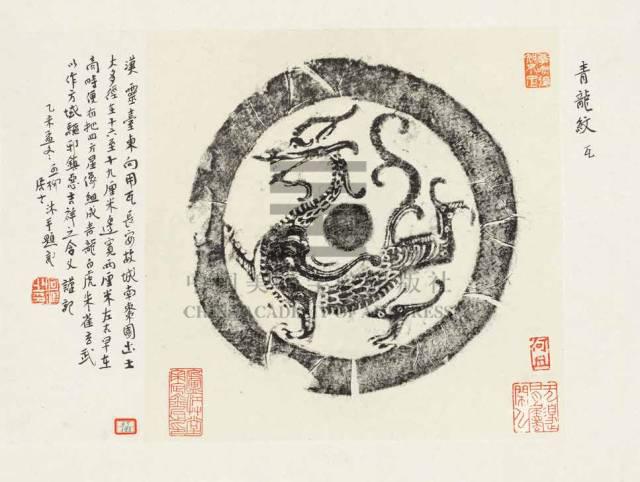 青龍紋瓦
漢靈臺東向用瓦長安故城南棗園出土
大多徑在十六至十九厘米邊寬兩厘米左右早在
商時便有把四方星像組成青龍白虎朱雀玄武
以作方域驅邪鎮惡吉祥之含义謹記
乙未孟冬
沐手題記
居士
中国美术学院出版社
CHINA ACADEMY OF ART PRESS